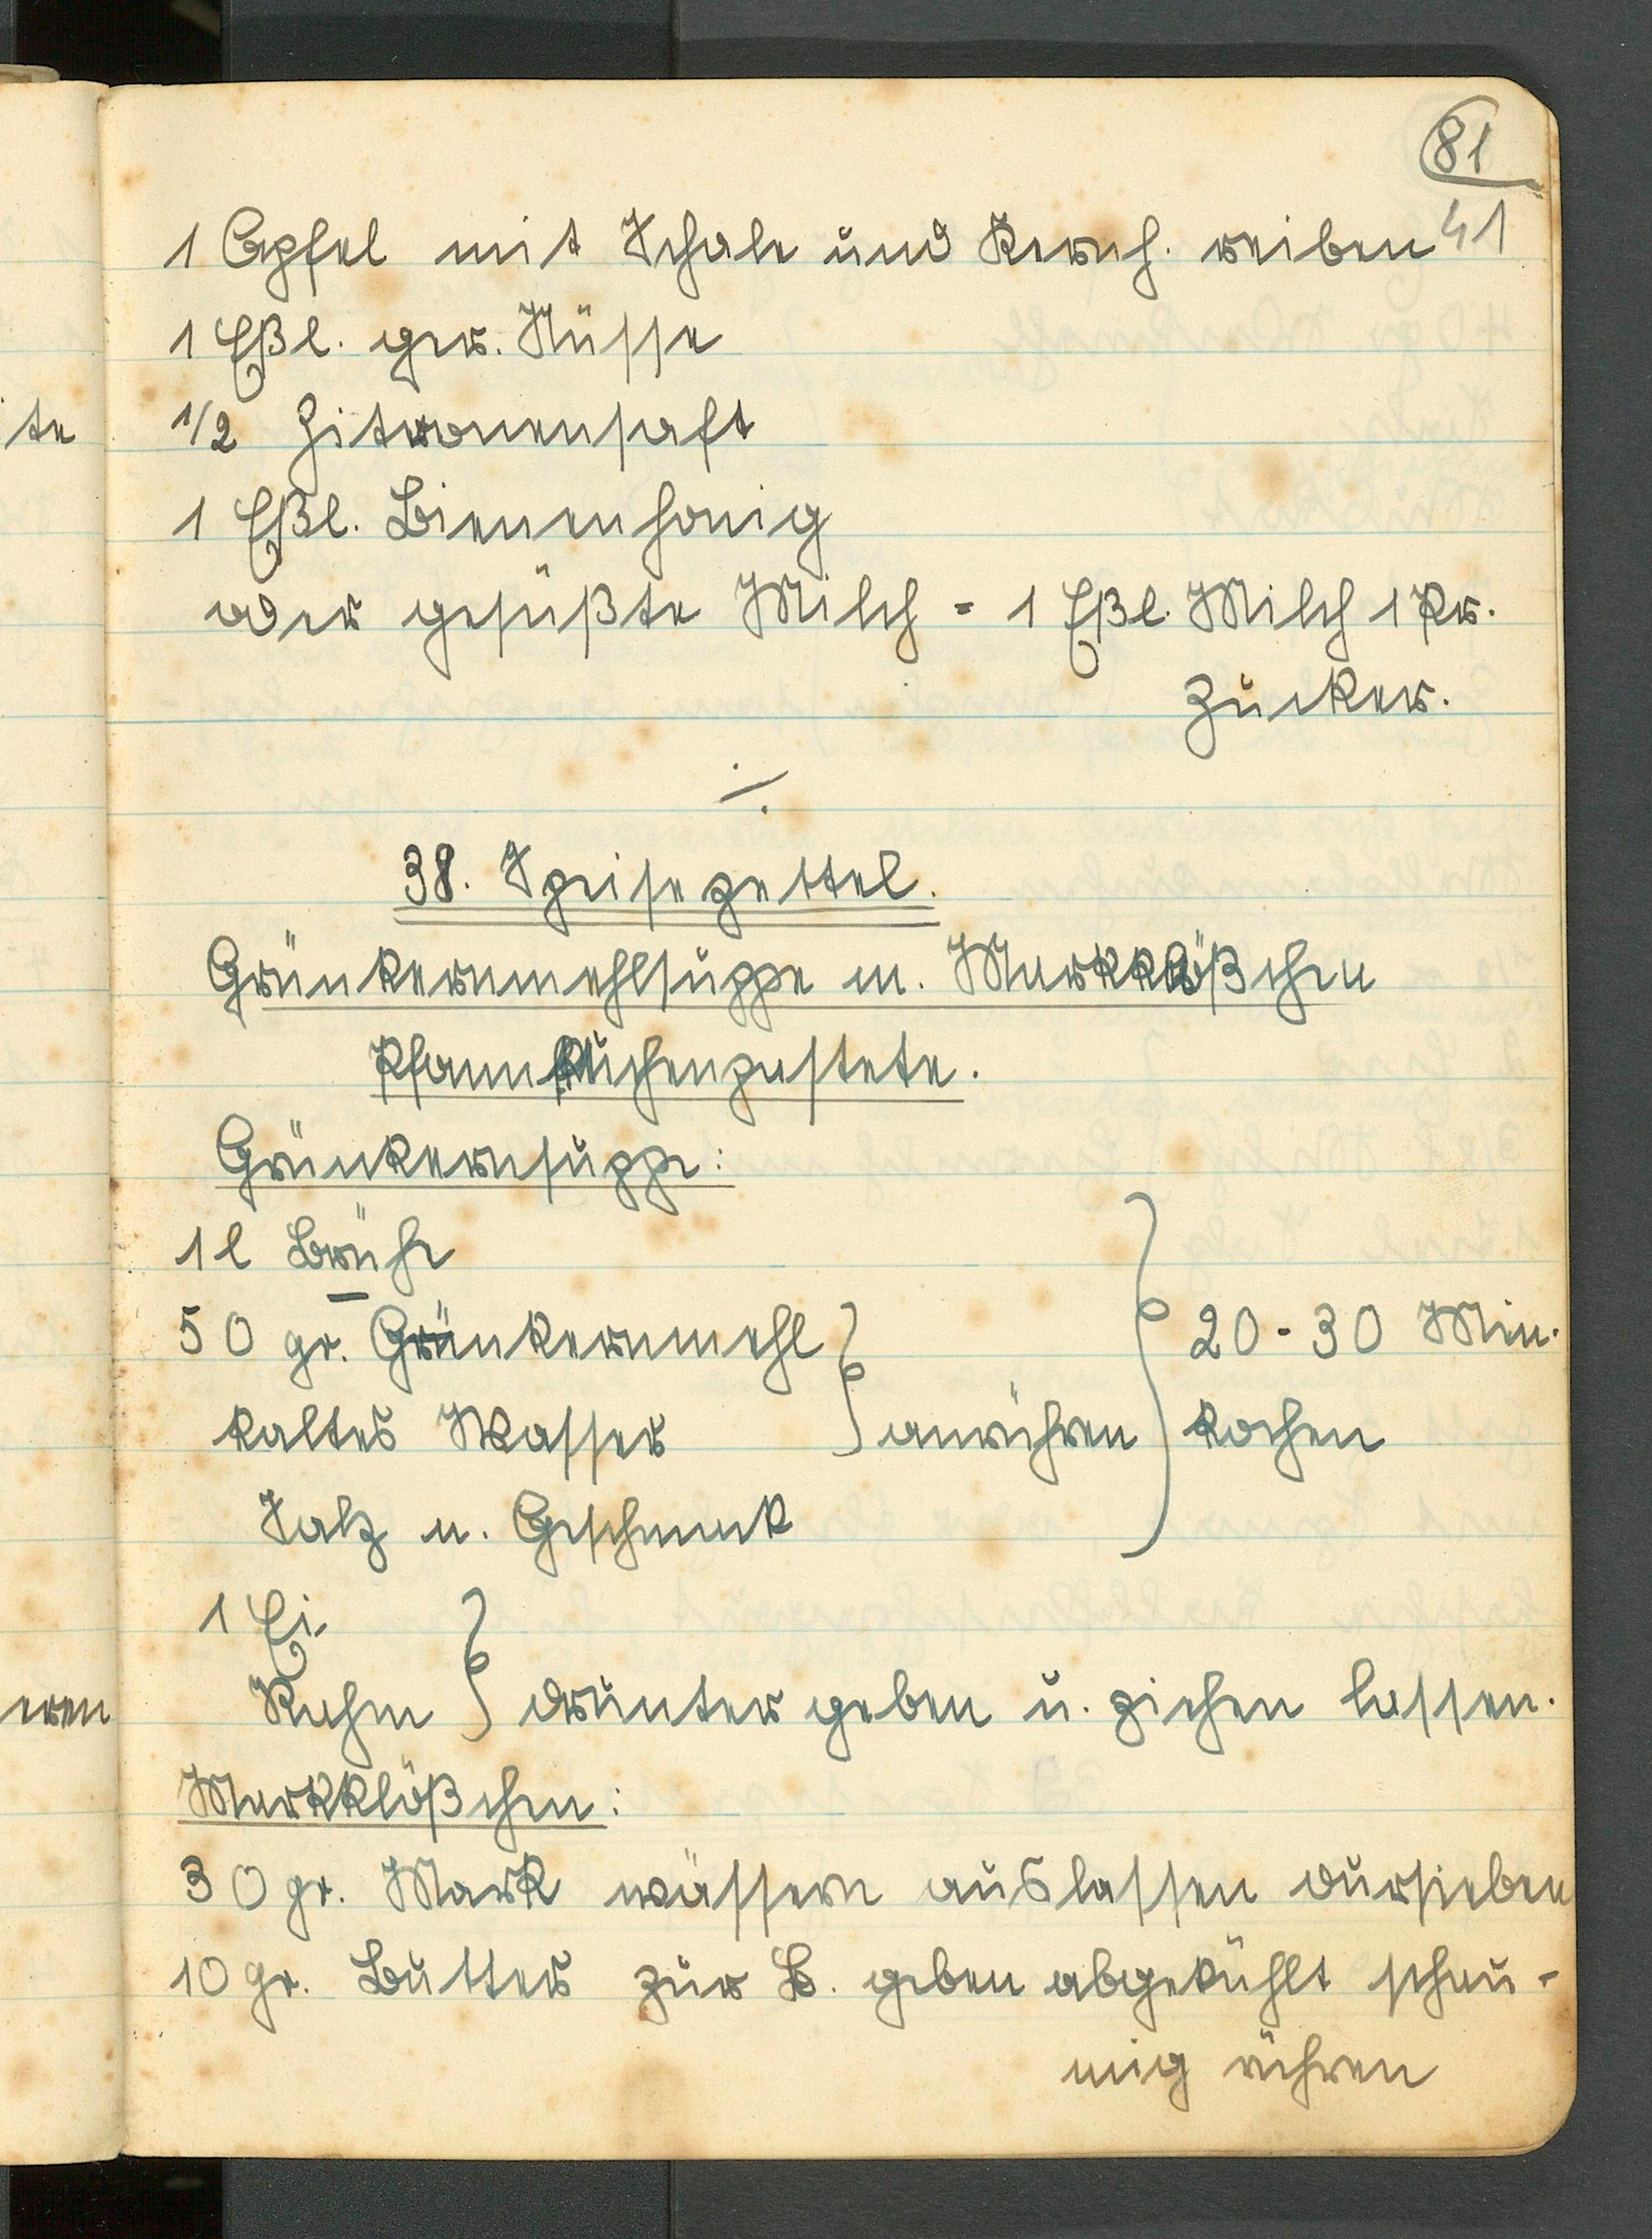 81
41
1 Apfel mit Schale und Kernh. reiben
1 Eßl. ger. Nüsse
1/2 Zitronensaft
1 Eßl. Bienenhonig
oder gesüßte Milch = 1 Eßl. Milch 1 Pr.
Zucker.
./.
38. Speisezettel.
Grünkernmehlsuppe m. Markklößchen
Pfannkuchenpastete.
Grünkernsuppe:
1 l Brühe
50 gr. Grünkernmehl } 20-30 Min.
kaltes Wasser } anrühren } kochen
Salz n. Geschmack
1 Ei
Rahm } drunter geben u. ziehen lassen.
Markklößchen:
30 gr. Mark wässern auslassen dursieben
10 gr. Butter zur B. geben abgekühlt schau-
mig rühren
te
eren